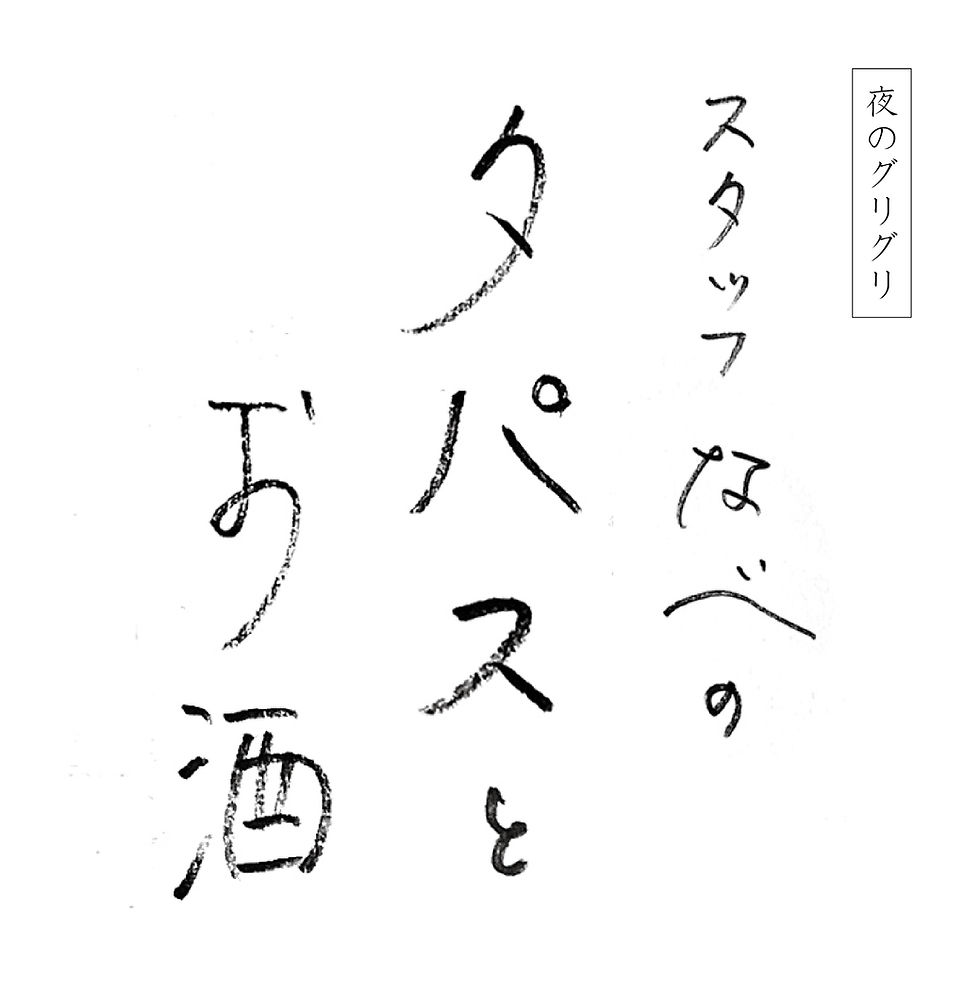 夜のグリグリ
スタッフ なべの
タパスと
お酒